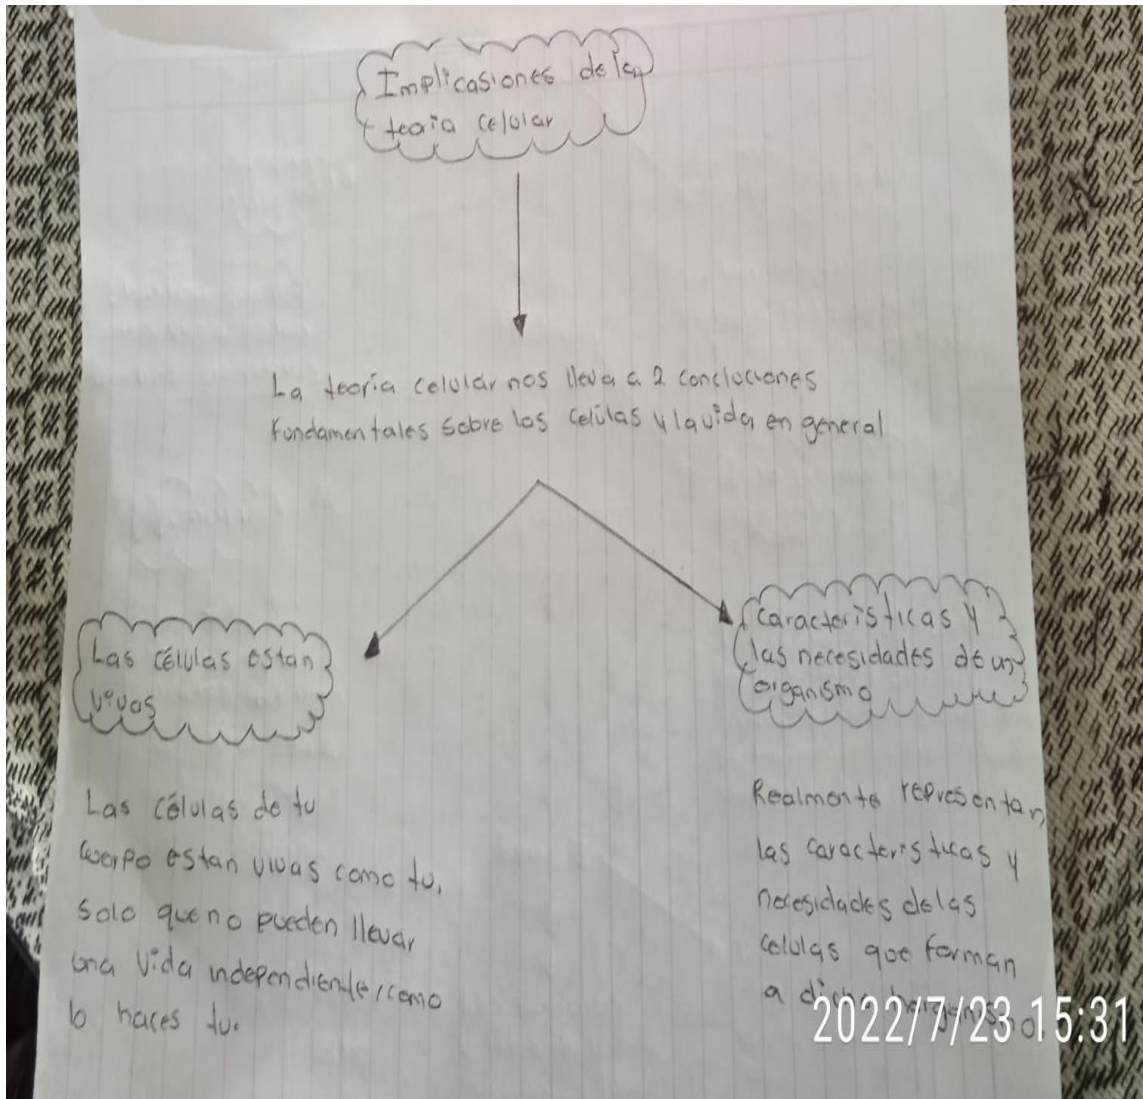 Implicasiones de la
teoría celular
La teoría celular nos lleva a 2 conclociones
fundamentales sobre las celúlas y la vida en general
Las células estan
vivas
caracteristicas y
las necesidades de un
organismo
Las células de tu
cuerpo estan vivas como tu,
solo que no pueden llevar
una vida independiente, como
lo haces tu.
Realmente representan
las caracteristicas y
necesidades de las
celulas que forman
a dicho
2022/7/23 15:31